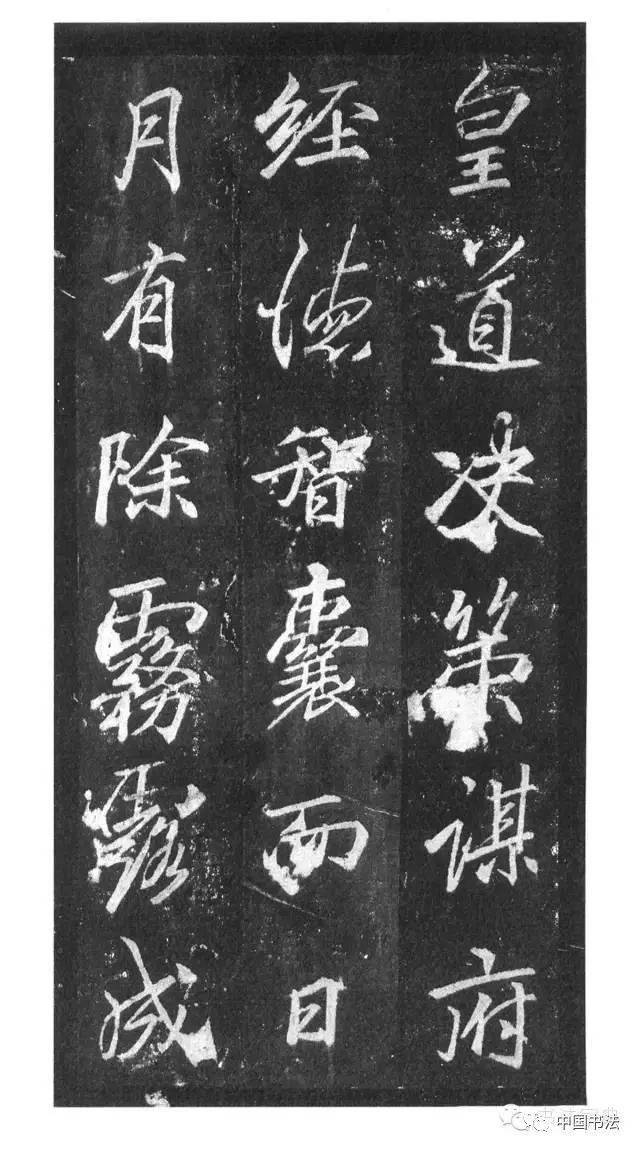 皇道决策謀府
經德智囊而日
月有除霧露成
中国书法